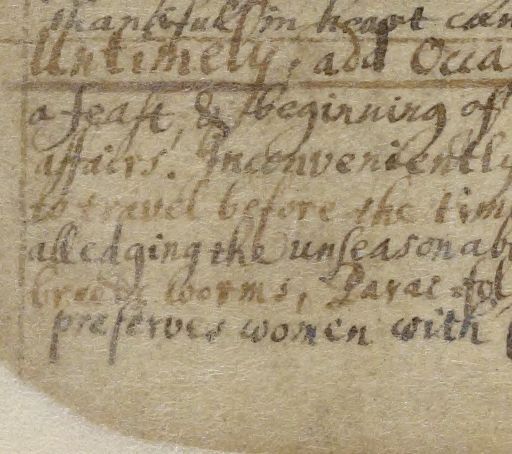 thankfull in heart can
Untimely, add Occa
a feast, & beginning of
affairs. Inconveniently
to travel before the tim
alledging the unseasonab
breeds worms, Parac fol
preserves women with